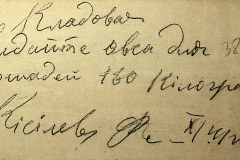 Кладовая
видайте овса для 38
лошадей 160 Кілогра
Кісілев XI